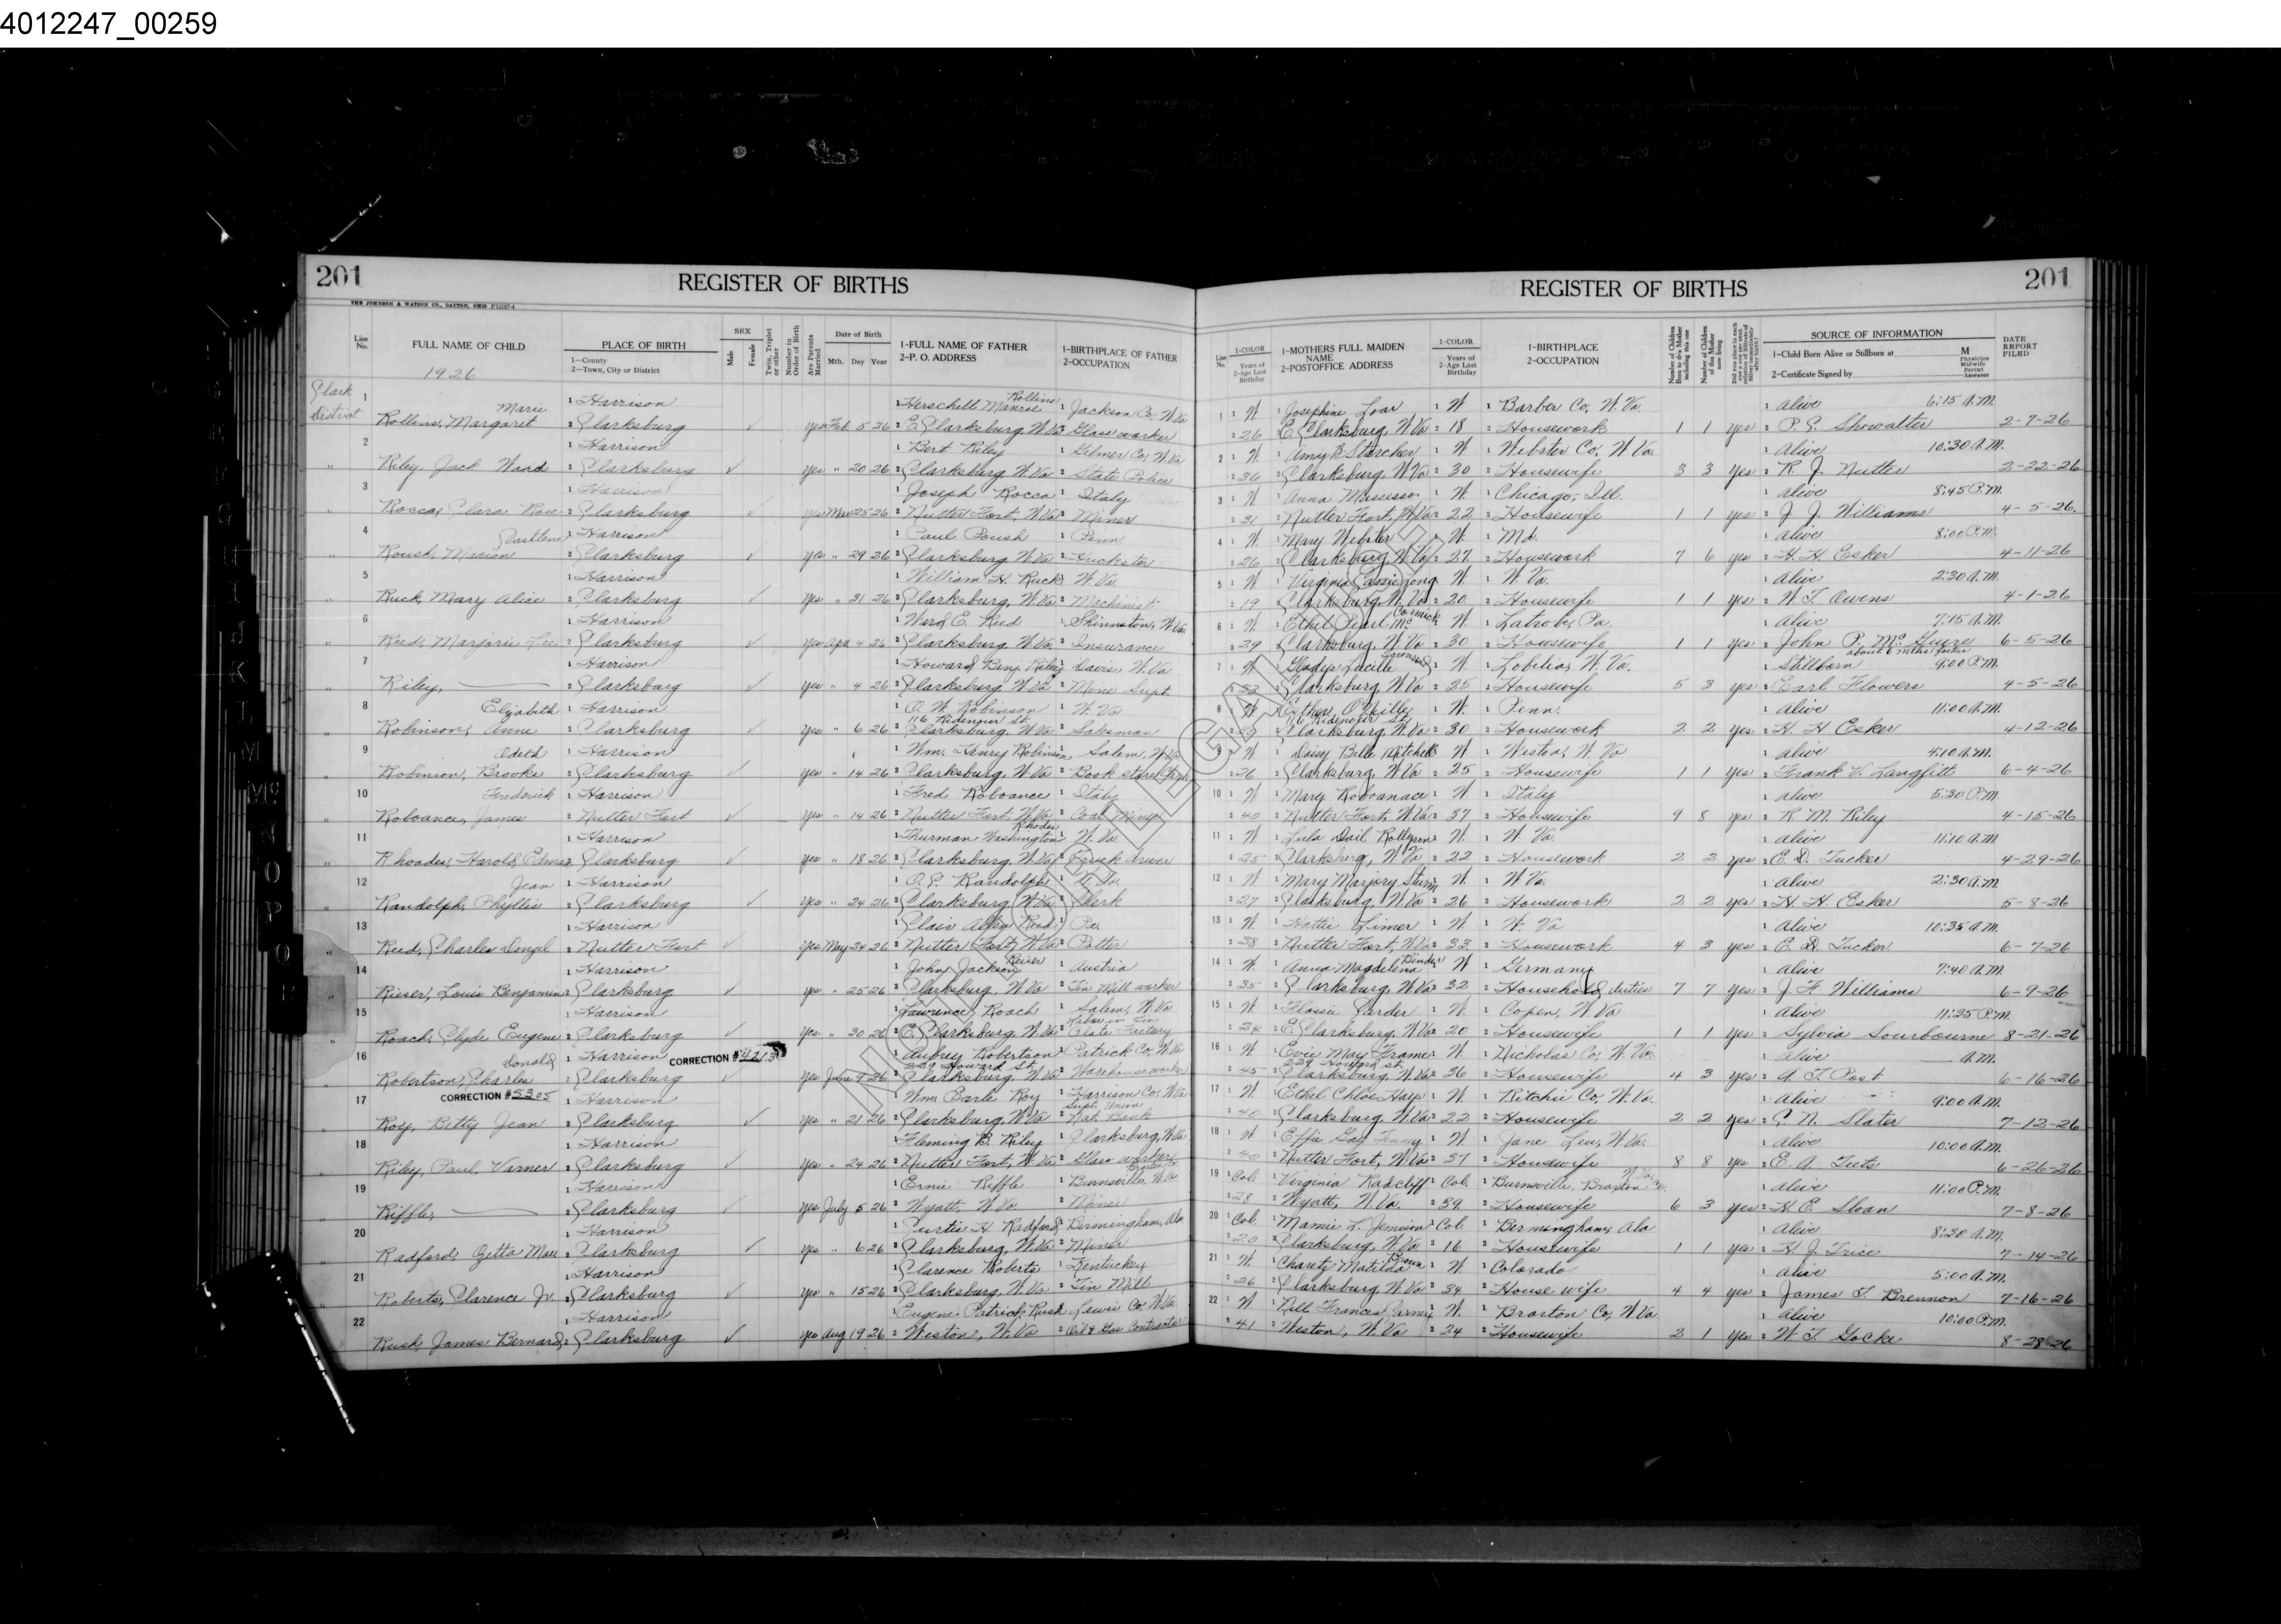 4012247_00259
201 REGISTER OF BIRTHS
REGISTER OF BIRTHS 201
THE JOHNSON & WATSON CO., DAYTON, OHIO
Line No. FULL NAME OF CHILD PLACE OF BIRTH SEX Twin, Triplet or other Number in Order of Birth Are Parents Married Date of Birth 1-FULL NAME OF FATHER 1-BIRTHPLACE OF FATHER
1926 1-County 2-Town, City or District Male Female Mth. Day Year 2-P. O. ADDRESS 2-OCCUPATION
Line No. 1-COLOR Years of 2-Age Last Birthday 1-MOTHERS FULL MAIDEN NAME 2-POSTOFFICE ADDRESS 1-COLOR Years of 2-Age Last Birthday 1-BIRTHPLACE 2-OCCUPATION Number of Children Born to this Mother including this one Number of Children of this Mother now living SOURCE OF INFORMATION DATE REPORT FILED
1-Child Born Alive or Stillborn at M
2-Certificate Signed by Physician Midwife Parent Assessor
Clark District
1 Marie 1 Harrison 1 Herschell Manroe Rollins 1 Jackson Co. W.Va
Rollins, Margaret 2 Clarksburg yes Feb. 5 26 2 E. Clarksburg, W.Va 2 Glass worker
1 1 W 1 Josephine Loar 1 W 1 Barber Co, W.Va. 1 Alive 6:15 A.M.
2 26 E. Clarksburg, W.Va 2 18 2 Housework 1 1 yes 2 P. C. Showalter 2-7-26
2 1 Harrison 1 Bert Riley 1 Gilmer Co, W.Va
Riley, Jack Ward 2 Clarksburg yes " 20 26 2 Clarksburg W.Va 2 State Police
2 1 W 1 Amy B. Starcher 1 W 1 Webster Co, W Va 1 Alive 10:30 A.M.
2 36 2 Clarksburg, W.Va 2 30 2 Housewife 3 3 yes 2 R. J. Nutter 2-22-26
3 1 Harrison 1 Joseph Rocca 1 Italy
Rocca, Clara 2 Clarksburg yes Mar 25 26 2 Nutter Fort, W.Va 2 Miner
3 1 W 1 Anna 1 W. 1 Chicago, Ill. 1 Alive 8:45 P.M.
2 31 2 Nutter Fort, W.Va 2 22 2 Housewife 1 1 yes 2 J. J. Williams 4-5-26.
4 1 Harrison 1 Paul Roush 1 Penn
Roush, Marion 2 Clarksburg yes " 29 26 2 Clarksburg W.Va 2 Huckster
4 1 W. 1 Mary Webster 1 W. 1 Md. 1 Alive 8:00 P.M.
2 26 2 Clarksburg, W.Va 2 27 2 Housework 7 6 yes 2 H. H Esker 4-11-26
5 1 Harrison 1 William H. Ruck 1 W. Va.
Ruck, Mary Alice 2 Clarksburg yes " 31 26 2 Clarksburg, W.Va 2 Machinist
5 1 W 1 Virginia Cassie Long 1 W 1 W. Va. 1 Alive 2:30 A.M.
2 19 Clarksburg, W.Va 2 20 2 Housewife 1 1 yes 2 W. T. Owens 4-1-26
6 1 Harrison 1 Ward E. Reed 1 Shinnston, W.Va
Reed, Marjorie Lee 2 Clarksburg yes Apr. 4 26 2 Clarksburg, W.Va. 2 Insurance
6 1 W 1 Ethel Pearl McCormick W 1 Latrobe, Pa. 1 Alive 7:15 A.M.
2 29 Clarksburg, W.Va 2 30 2 Housewife 1 1 yes 2 John P. McGuire 6-5-26
7 1 Harrison 1 Howard Benj. Riley 1 Davis, W.Va
Riley, 2 Clarksburg yes " 4 26 2 Clarksburg, W.Va 2 Mine Supt.
7 1 W 1 Gladys Lucille 1 W. 1 Lobelia, W. Va. 1 Stillborn about 6 mths foetus 9:00 P.M.
Clarksburg, W.Va 2 25 2 Housewife 5 3 yes 2 Earl Flowers 4-5-26
8 Elizabeth 1 Harrison 1 O. W. Robinson 1 W. Va
Robinson, Anne 2 Clarksburg yes " 6 26 116 Ridenour St. Clarksburg, W.Va 2 Salesman
8 1 W Esther O'Reilly 1 W. 1 Penn. 1 Alive 11:00 A.M.
116 Ridenour St. Clarksburg, W.Va 2 30 2 Housework 2 2 yes 2 H. H Esker 4-12-26
9 Odeth 1 Harrison 1 Wm. Henry Robinson Salem, W.Va
Robinson, Brooks 2 Clarksburg yes " 14 26 2 Clarksburg, W.Va 2 Book store
9 1 W 1 Daisy Belle Mitchell W. 1 Weston, W. Va 1 Alive 4:10 A.M.
2 26 2 Clarksburg, W.Va 2 25 2 Housewife 1 1 yes 2 Frank V. Langfitt 6-4-26
10 Frederick 1 Harrison 1 Fred Roboance 1 Italy
Roboance, James 2 Nutter Fort yes " 14 26 2 Nutter Fort, W.Va 2 Coal Miner
10 1 W. 1 Mary Roboanace 1 W. 1 Italy 1 Alive 5:30 P.M
2 40 2 Nutter Fort, W.Va 2 37 2 Housewife 9 8 yes 2 R. M. Riley 4-15-26
11 1 Harrison 1 Thurman Washington Rhodes 1 W. Va.
Rhoades, Harold Elmer 2 Clarksburg yes " 18 26 2 Clarksburg, W.Va 2 Truck driver
11 1 W. 1 Lula Dail Rollyson 1 W. 1 W Va. 1 Alive 11:10 A.M
2 25 2 Clarksburg, W.Va 2 22 2 Housework 2 2 yes 2 E. D. Tucker 4-29-26
12 Jean 1 Harrison 1 O. C. Randolph 1 W. Va
Randolph, Phyllis 2 Clarksburg yes " 24 26 2 Clarksburg W.Va 2 Clerk
12 1 W 1 Mary Marjory Sturm W. 1 W Va. 1 Alive 2:30 A.M.
2 27 2 Clarksburg, W.Va 2 26 2 Housework 2 2 yes 2 H. H Esker 5-8-26
13 1 Harrison 1 Clair Reed 1 Pa.
Reed, Charles 2 Nutter Fort yes May 24 26 2 Nutter Fort, W.Va 2 Potter
13 1 W. 1 Hattie Limer 1 W 1 W. Va 1 Alive 10:35 A.M.
2 38 2 Nutter Fort, W.Va 2 33 2 Housework 4 3 yes 2 E. D. Tucker 6-7-26
14 1 Harrison 1 John Jackson Reiser 1 Austria
Rieser, Louis Benjamin 2 Clarksburg yes " 25 26 2 Clarksburg, W.Va 2 Tin Mill worker
14 1 W. 1 Anna Magdelena Binder 1 W 1 Germany 1 Alive 7:40 A.M.
2 35 2 Clarksburg, W.Va 2 32 2 Household duties 7 7 yes 2 J F Williams 6-9-26
15 1 Harrison 1 Lawrence Roach 1 Salem, W.Va
Roach, Clyde Eugene 2 Clarksburg yes " 30 26 2 E. Clarksburg, W.Va
15 1 W 1 Flossie Carder 1 W. 1 Copen, W.Va 1 Alive 11:35 P.M.
2 24 2 E. Clarksburg, W.Va 2 20 2 Housewife 1 1 yes 2 Sylvia Sourbourne 8-21-26
16 Donald 1 Harrison CORRECTION #4213 1 Aubrey Robertson 1 Patrick Co, W.Va
Robertson, Charles 2 Clarksburg yes June 9 26 229 Howard St. Clarksburg, W.Va 2 Warehouse worker
16 1 W. 1 Evie May Frame 1 W. 1 Nicholas Co, W.Va. 1 Alive A.M.
2 45 229 Howard St. Clarksburg, W.Va 2 36 2 Housewife 4 3 yes 2 A. T. Post 6-16-26
17 CORRECTION #5305 1 Harrison 1 Wm. Earle Roy 1 Harrison Co. W.Va
Roy, Betty Jean 2 Clarksburg yes " 21 26 2 Clarksburg, W.Va Union Nat Bank
17 1 W. 1 Ethel Chloe Hays 1 W. 1 Ritchie Co, W.Va. 1 Alive 9:00 A.M.
2 40 2 Clarksburg, W.Va 2 22 2 Housewife 2 2 yes 2 C. N. Slater 7-12-26
18 1 Harrison 1 Fleming B. Riley 1 Clarksburg, W.Va
Riley, Paul Varner 2 Clarksburg yes " 24 26 2 Nutter Fort, W.Va 2 Glass worker
18 1 W 1 Effie Gay 1 W 1 Jane Lew, W.Va. 1 Alive 10:00 A.M.
2 40 2 Nutter Fort, W.Va 2 37 2 Housewife 8 8 yes 2 E. A. Teets 6-26-26
19 1 Harrison 1 Ernie Riffle 1 Burnsville, W.Va
Riffle, 2 Clarksburg yes July 5 26 2 Wyatt, W.Va 2 Miner
19 1 Col. 1 Virginia Radcliff 1 Col. 1 Burnsville, Braxton Co. W.Va 1 Alive 11:00 P.M.
2 28 2 Wyatt, W.Va. 2 39 2 Housewife 6 3 yes 2 H. E. Sloan 7-8-26
20 1 Harrison 1 Curtis H. Radford 1 Birmingham, Ala
Radford, Zetta Mae 2 Clarksburg yes " 6 26 2 Clarksburg, W.Va 2 Miner
20 1 Col. 1 Mamie L. Jemison 1 Col. 1 Bermingham, Ala 1 Alive 8:30 A.M.
2 20 2 Clarksburg, W.Va 2 16 2 Housewife 1 1 yes 2 H. J. Trice 7-14-26
21 1 Harrison 1 Clarence Roberts 1 Kentuckey
Roberts, Clarence Jr. 2 Clarksburg yes " 15 26 2 Clarksburg, W.Va 2 Tin Mill
21 1 W. 1 Charety Matilda Brown 1 W. 1 Colorado 1 Alive 5:00 A.M.
2 26 2 Clarksburg W.Va 2 34 2 House wife 4 4 yes 2 James T. Brennon 7-16-26
22 1 Harrison 1 Eugene Patrick Rusk 1 Lewis Co. W.Va
Rusk, James Bernard 2 Clarksburg yes Aug 19 26 2 Weston, W.Va 2 Oil & Gas Contractor
22 1 W 1 Nell Frances 1 W. 1 Braxton Co, W.Va 1 Alive 10:00 P.M.
2 41 2 Weston, W.Va 2 24 2 Housewife 2 1 yes 2 W. T. Gocke 8-28-26
NOT A LEGAL